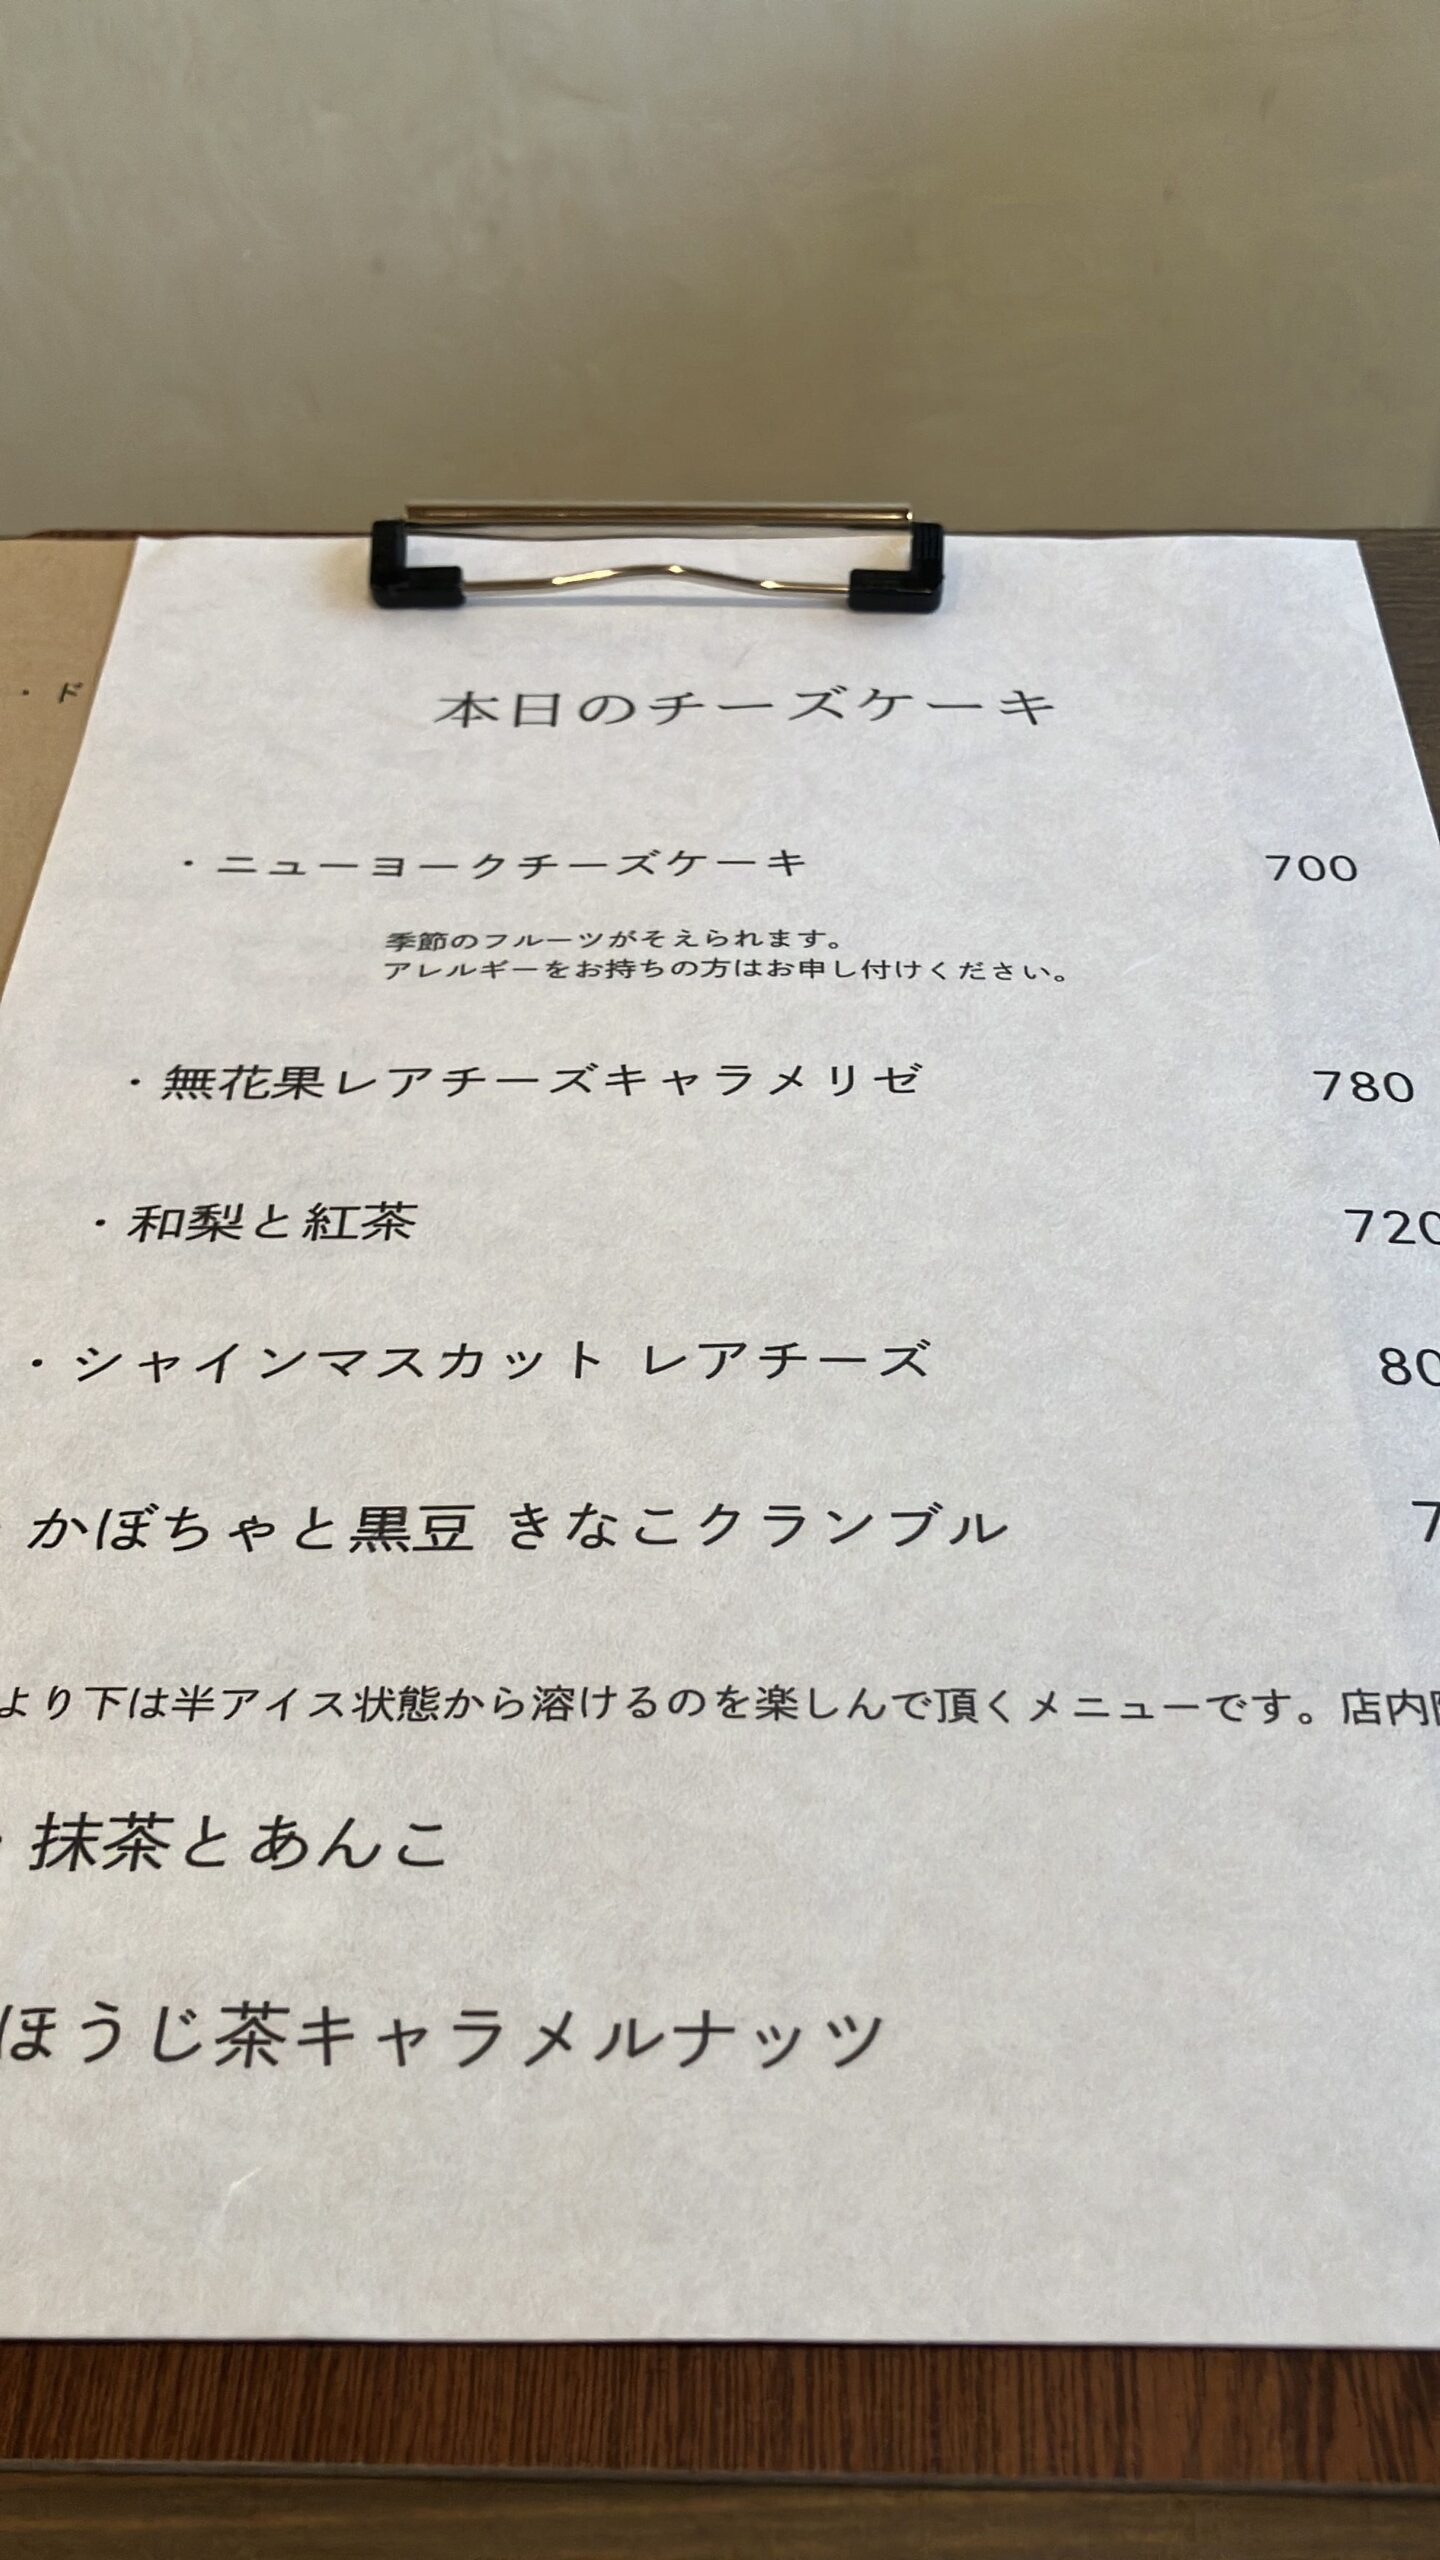 ・ド
本日のチーズケーキ
・ニューヨークチーズケーキ 700
季節のフルーツがそえられます。
アレルギーをお持ちの方はお申し付けください。
・無花果レアチーズキャラメリゼ 780
・和梨と紅茶 720
・シャインマスカット レアチーズ 80
かぼちゃと黒豆 きなこクランブル 7
より下は半アイス状態から溶けるのを楽しんで頂くメニューです。店内
・抹茶とあんこ
ほうじ茶キャラメルナッツ